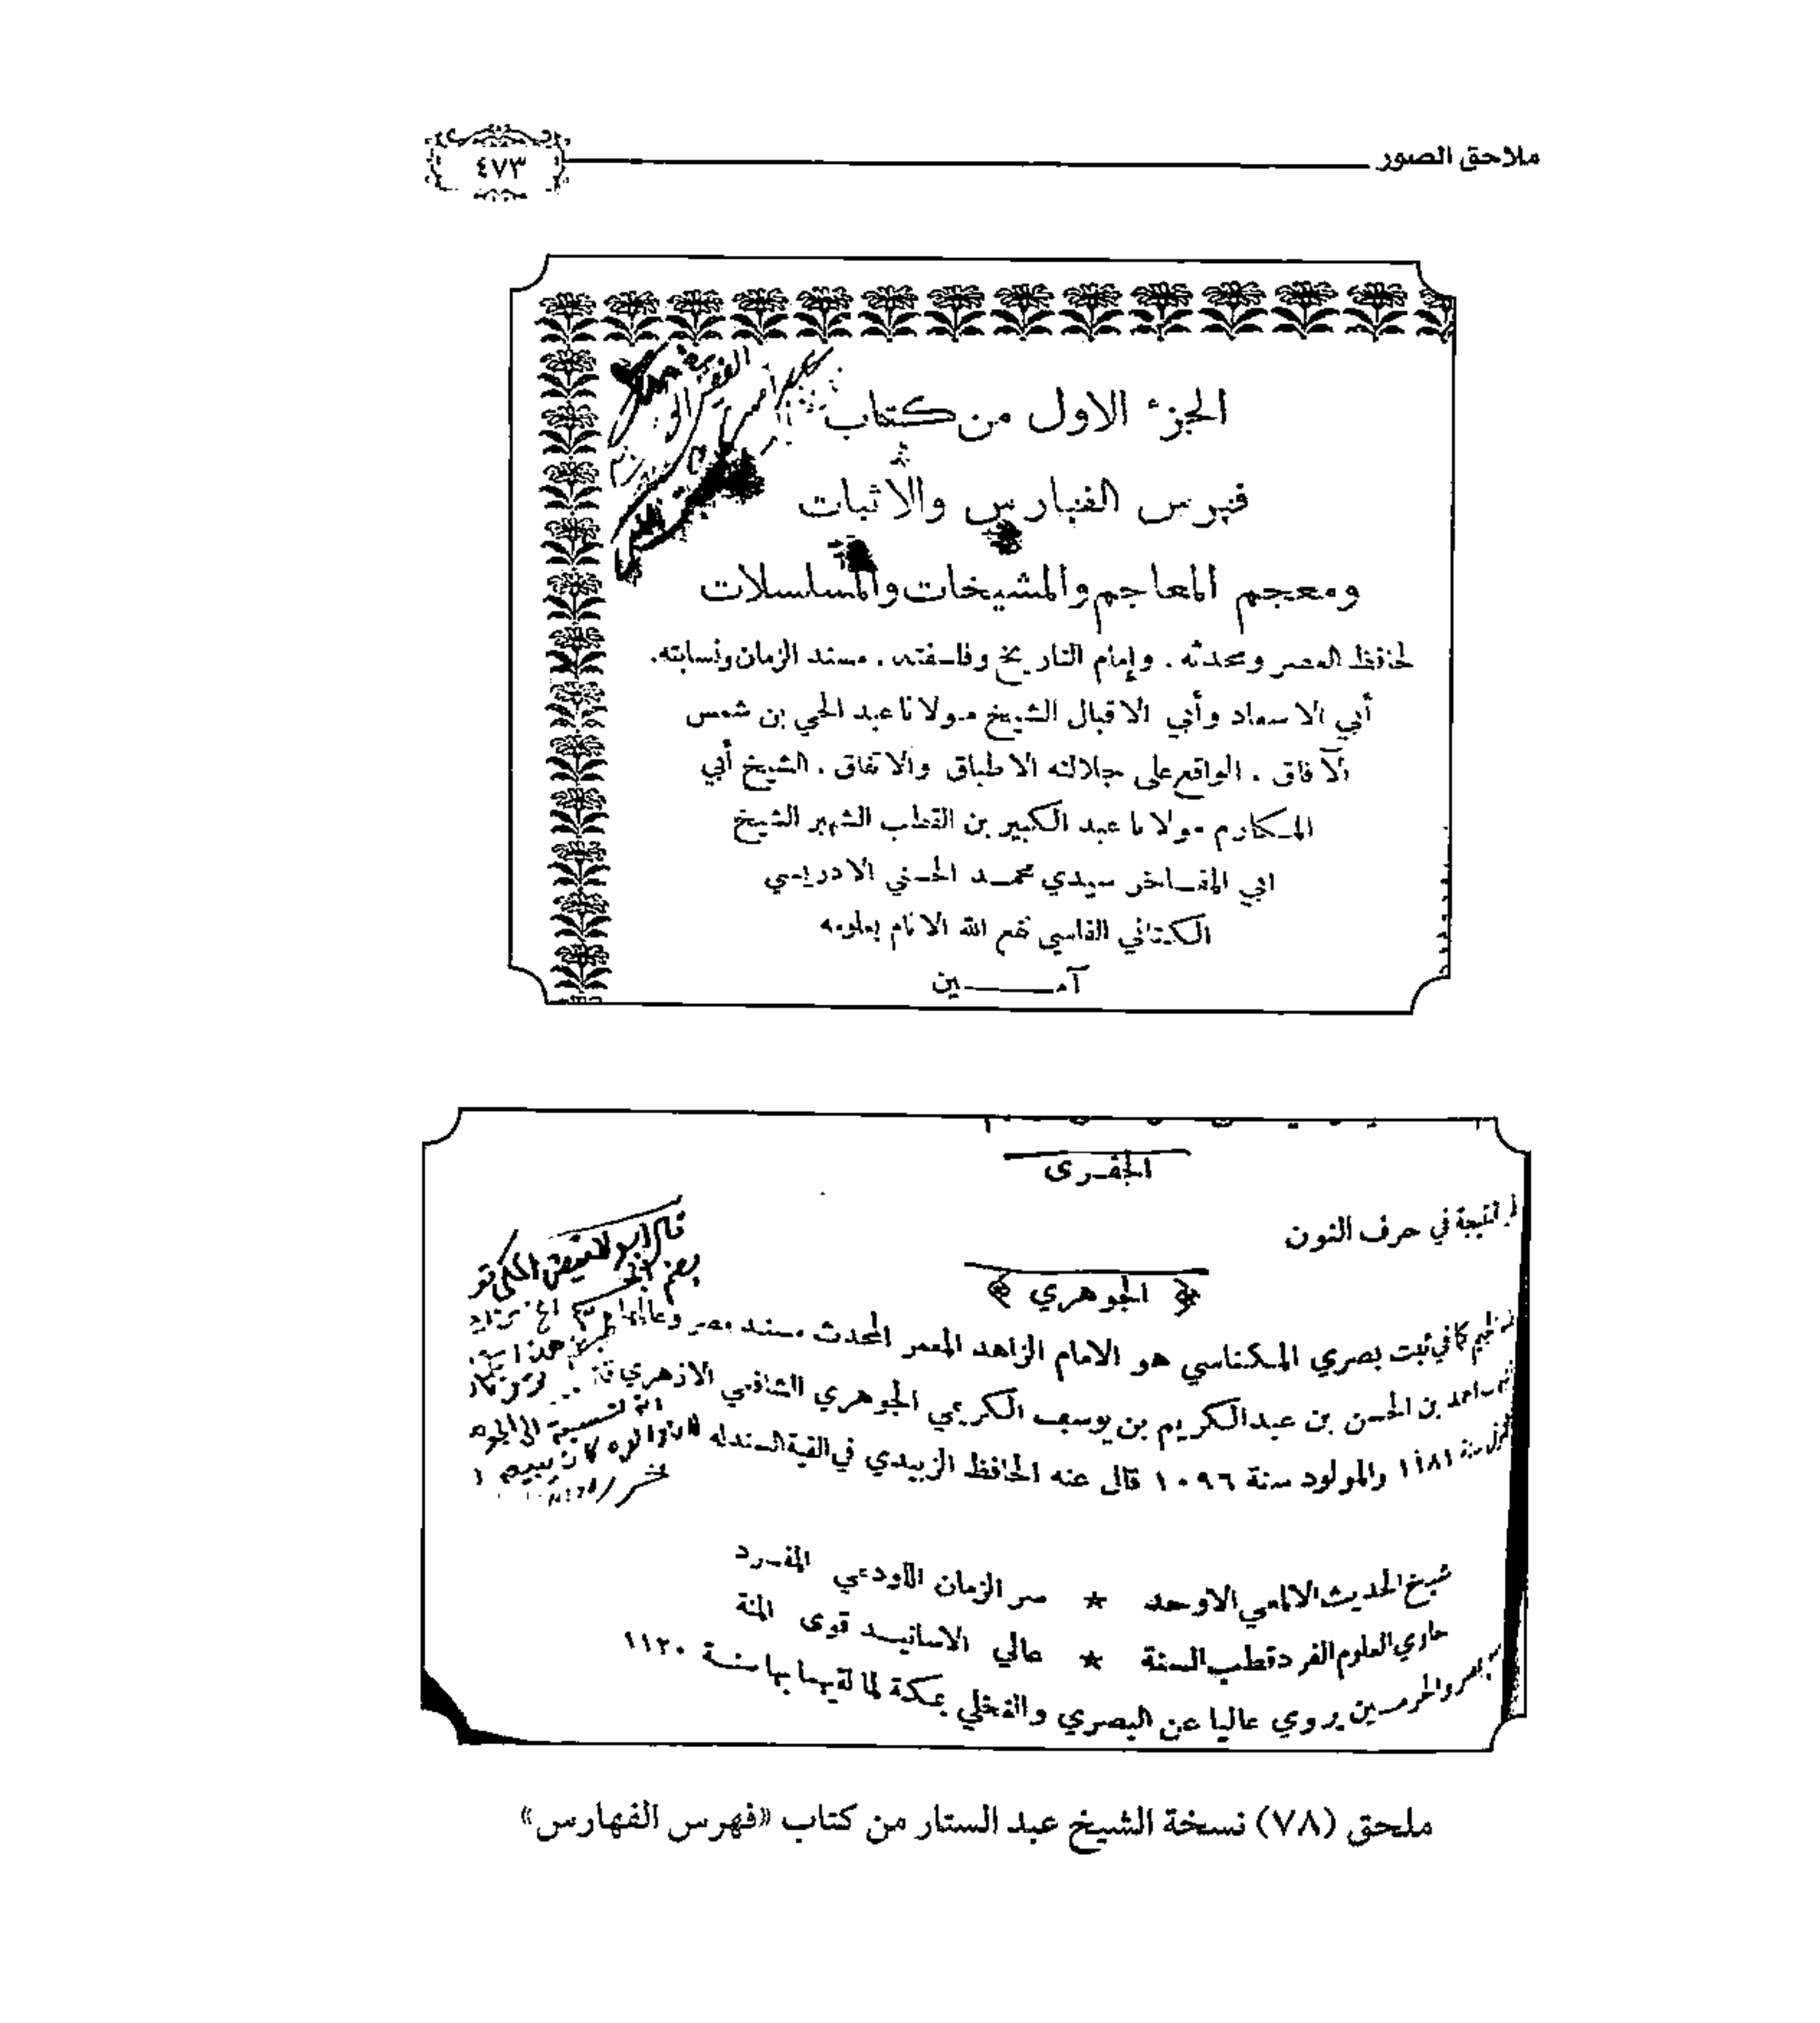 ملاحق الصور
٤٧٣
الجزء الاول من كتاب
فهرس الفهارس والأثبات
ومعجم المعاجم والمشيخات والمسلسلات
لحافظ العصر ومحدثه . وإمام التاريخ وفلسفته . مسند الزمان ونسابته .
أبي الاسعاد وأبي الاقبال الشيخ مولانا عبد الحي بن شمس
الآفاق . الواقع على جلالته الاطباق والاتفاق . الشيخ أبي
المكارم مولانا عبد الكبير بن القطب الشهير الشيخ
ابي المفاخر سيدي محمد الحسني الادريسي
الكتاني الفاسي نفع الله الانام بعلومه
آمين
الجفرى
النتيجة في حرف النون
﴿ الجوهري ﴾
كما في ثبت بصري المكناسي هو الامام الزاهد المعمر المحدث مسند مصر وعالمها
احمد بن الحسن بن عبدالكريم بن يوسف الكريمي الجوهري الشافعي الازهري
سنة ١١٨١ والمولود سنة ١٠٩٦ قال عنه الحافظ الزبيدي في الفية السند له
شيخ الحديث الالمعي الاوحد * سر الزمان اللوذعي المفرد
حاوي العلوم الفرد قطب السنة * عالي الاسانيد قوى المنة
والحرمين يروي عاليا عن البصري والنخلي بمكة لما لقيهما بها سنة ١١٢٠
ملحق (٧٨) نسخة الشيخ عبد الستار من كتاب «فهرس الفهارس»